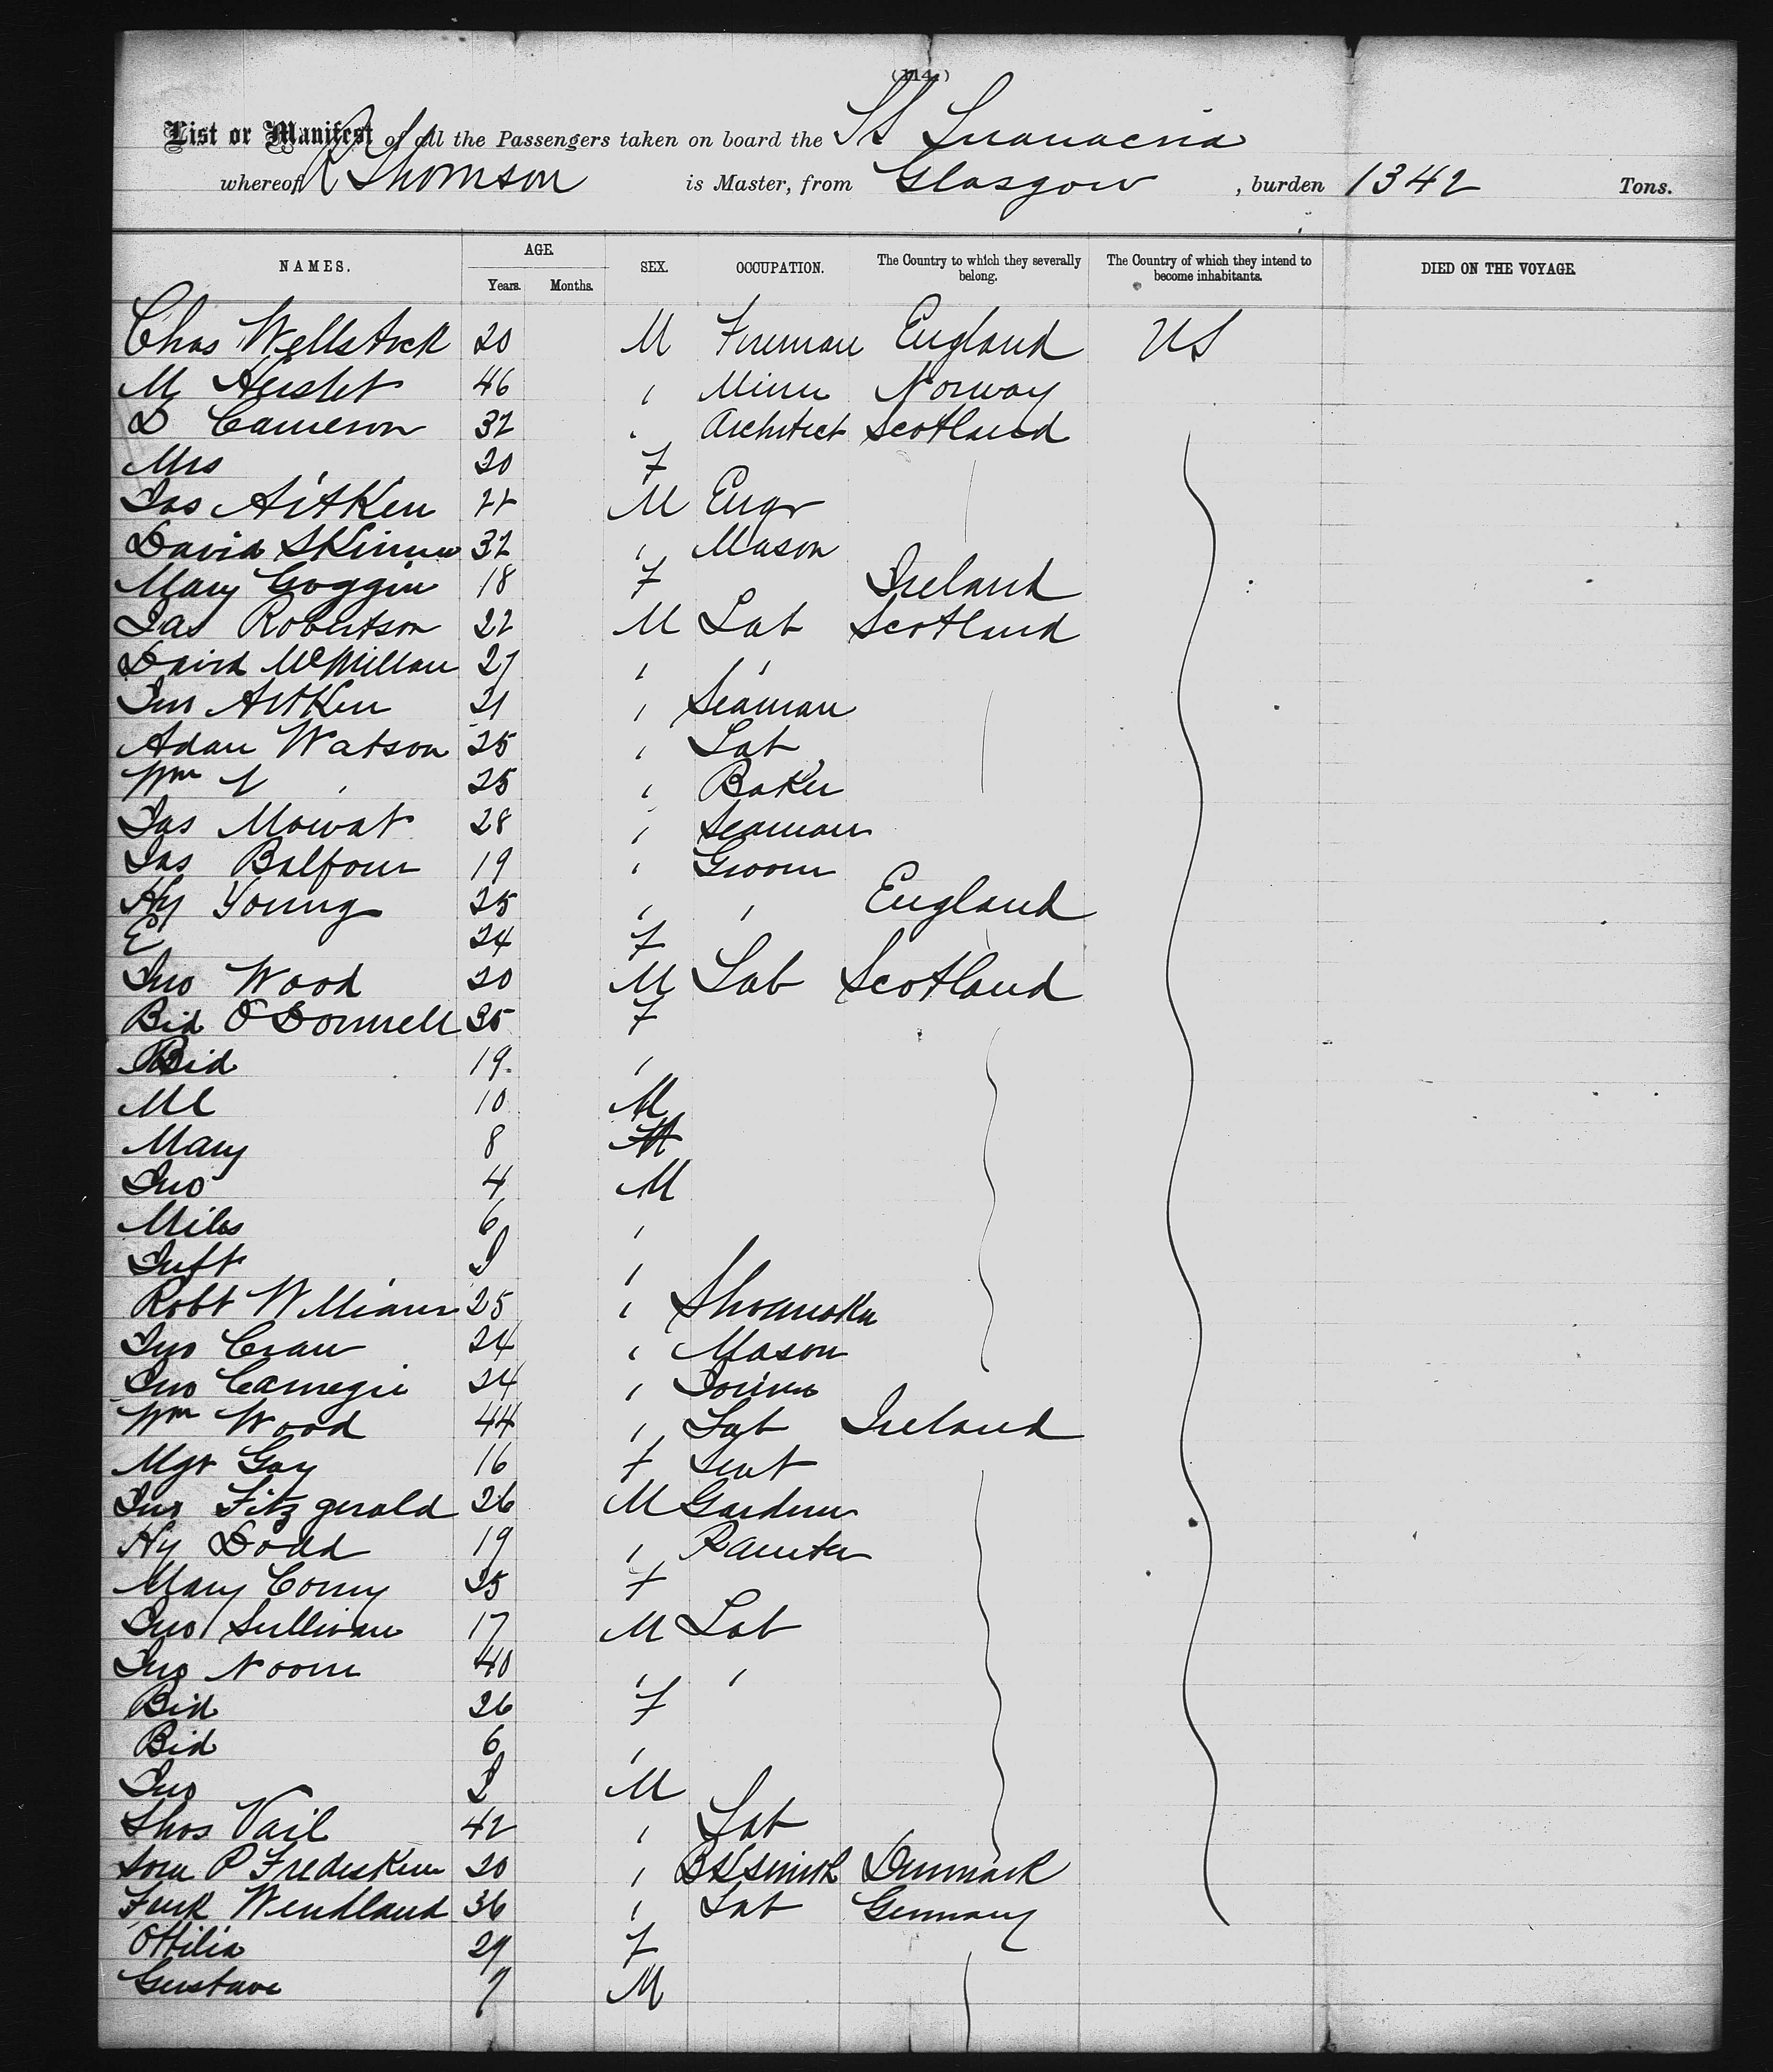 (114)
List or Manifest of all the Passengers taken on board the SS
whereof R Thomson is Master, from Glasgow , burden 1342 Tons.
NAMES. AGE. Years. Months. SEX. OCCUPATION. The Country to which they severally belong. The Country of which they intend to become inhabitants. DIED ON THE VOYAGE.
Chas Wellstock 20 M Fireman England US
M 46 " Miner Norway
D Cameron 32 " Architect Scotland
Mrs " 20 F
Jas Aitken 22 M Engr
David Skinner 32 " Mason
Mary Goggin 18 F Ireland
Jas Robertson 22 M Lab Scotland
David McMillan 27 " "
Jno Aitken 21 " Seaman
Adam Watson 25 " Lab
Wm " 25 " Baker
Jas Mowat 28 " Seaman
Jas Balfour 19 " Groom
Hy Young 25 " " England
E 24 F
Jno Wood 20 M Lab Scotland
Bid O'Donnell 35 F
Bid 19 "
Ml 10 M
Mary 8
Jno 4 M
Miles 6 "
Inft "
Robt Williams 25 "
Jno Cran 24 " Mason
Jno Carnegie 24 " Joiner
Wm Wood 44 " Lab Ireland
Mgt Gay 16 F Sevt
Jno Fitzgerald 26 M Gardener
Hy Dodd 19 " Painter
Mary Corny 25 F
Jno Sullivan 17 M Lab
Jno Noorn 40 " "
Bid 26 F
Bid 6 "
Jno M
Thos Vail 42 " Lab
P Fredeskin 20 " Blsmith Denmark
Wendland 36 " Lab Germany
Ottilia 29 F
Gustave 7 M